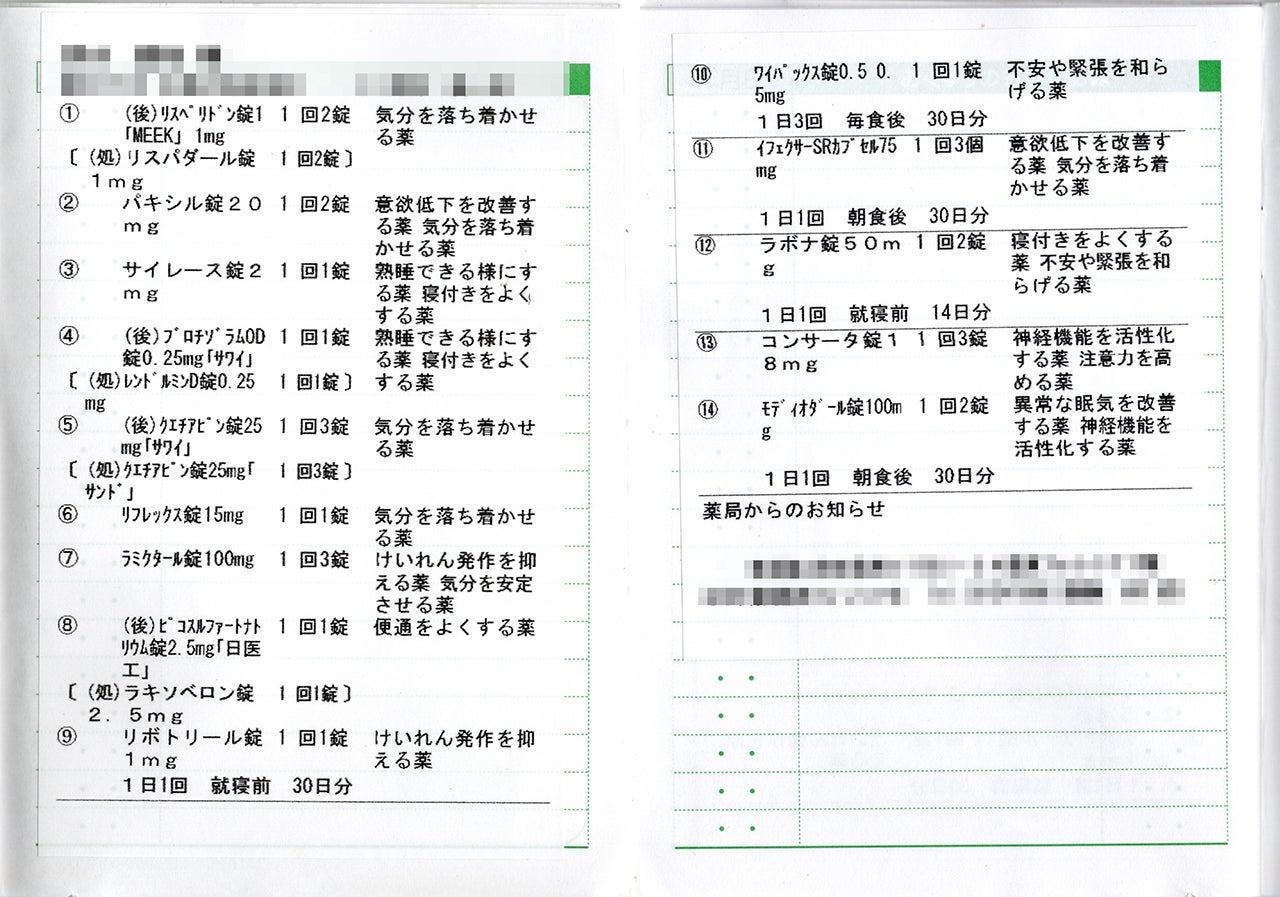 ① (後)ﾘｽﾍﾟﾘﾄﾞﾝ錠1 1 回2錠 気分を落ち着かせ
「MEEK」 1mg る薬
〔 (処)リスパダール錠 1 回2錠 〕
１ｍｇ
② パキシル錠２０ 1 回2錠 意欲低下を改善す
ｍｇ る薬 気分を落ち着
かせる薬
③ サイレース錠２ 1 回1錠 熟睡できる様にす
ｍｇ る薬 寝付きをよく
する薬
④ (後)ﾌﾞﾛﾁｿﾞﾗﾑOD 1 回1錠 熟睡できる様にす
錠0.25mg｢ｻﾜｲ｣ る薬 寝付きをよく
〔 (処)ﾚﾝﾄﾞﾙﾐﾝD錠0.25 1 回1錠 〕 する薬
mg
⑤ (後)ｸｴﾁｱﾋﾟﾝ錠25 1 回3錠 気分を落ち着かせ
mg｢ｻﾜｲ｣ る薬
〔 (処)ｸｴﾁｱﾋﾟﾝ錠25mg｢ 1 回3錠 〕
ｻﾝﾄﾞ｣
⑥ ﾘﾌﾚｯｸｽ錠15mg 1 回1錠 気分を落ち着かせ
る薬
⑦ ﾗﾐｸﾀｰﾙ錠100mg 1 回3錠 けいれん発作を抑
える薬 気分を安定
させる薬
⑧ (後)ﾋﾟｺｽﾙﾌｧｰﾄﾅﾄ 1 回1錠 便通をよくする薬
ﾘｳﾑ錠2.5mg｢日医
工｣
〔 (処)ラキソベロン錠 1 回1錠 〕
２．５ｍｇ
⑨ リボトリール錠 1 回1錠 けいれん発作を抑
１ｍｇ える薬
１日1回 就寝前 30日分
⑩ ﾜｲﾊﾟｯｸｽ錠0.5 0. 1 回1錠 不安や緊張を和ら
5mg げる薬
１日3回 毎食後 30日分
⑪ ｲﾌｪｸｻｰSRｶﾌﾟｾﾙ75 1 回3個 意欲低下を改善す
mg る薬 気分を落ち着
かせる薬
１日1回 朝食後 30日分
⑫ ラボナ錠５０ｍ 1 回2錠 寝付きをよくする
ｇ 薬 不安や緊張を和
らげる薬
１日1回 就寝前 14日分
⑬ コンサータ錠１ 1 回3錠 神経機能を活性化
８ｍｇ する薬 注意力を高
める薬
⑭ ﾓﾃﾞｨｵﾀﾞｰﾙ錠100m 1 回2錠 異常な眠気を改善
g する薬 神経機能を
活性化する薬
１日1回 朝食後 30日分
薬局からのお知らせ